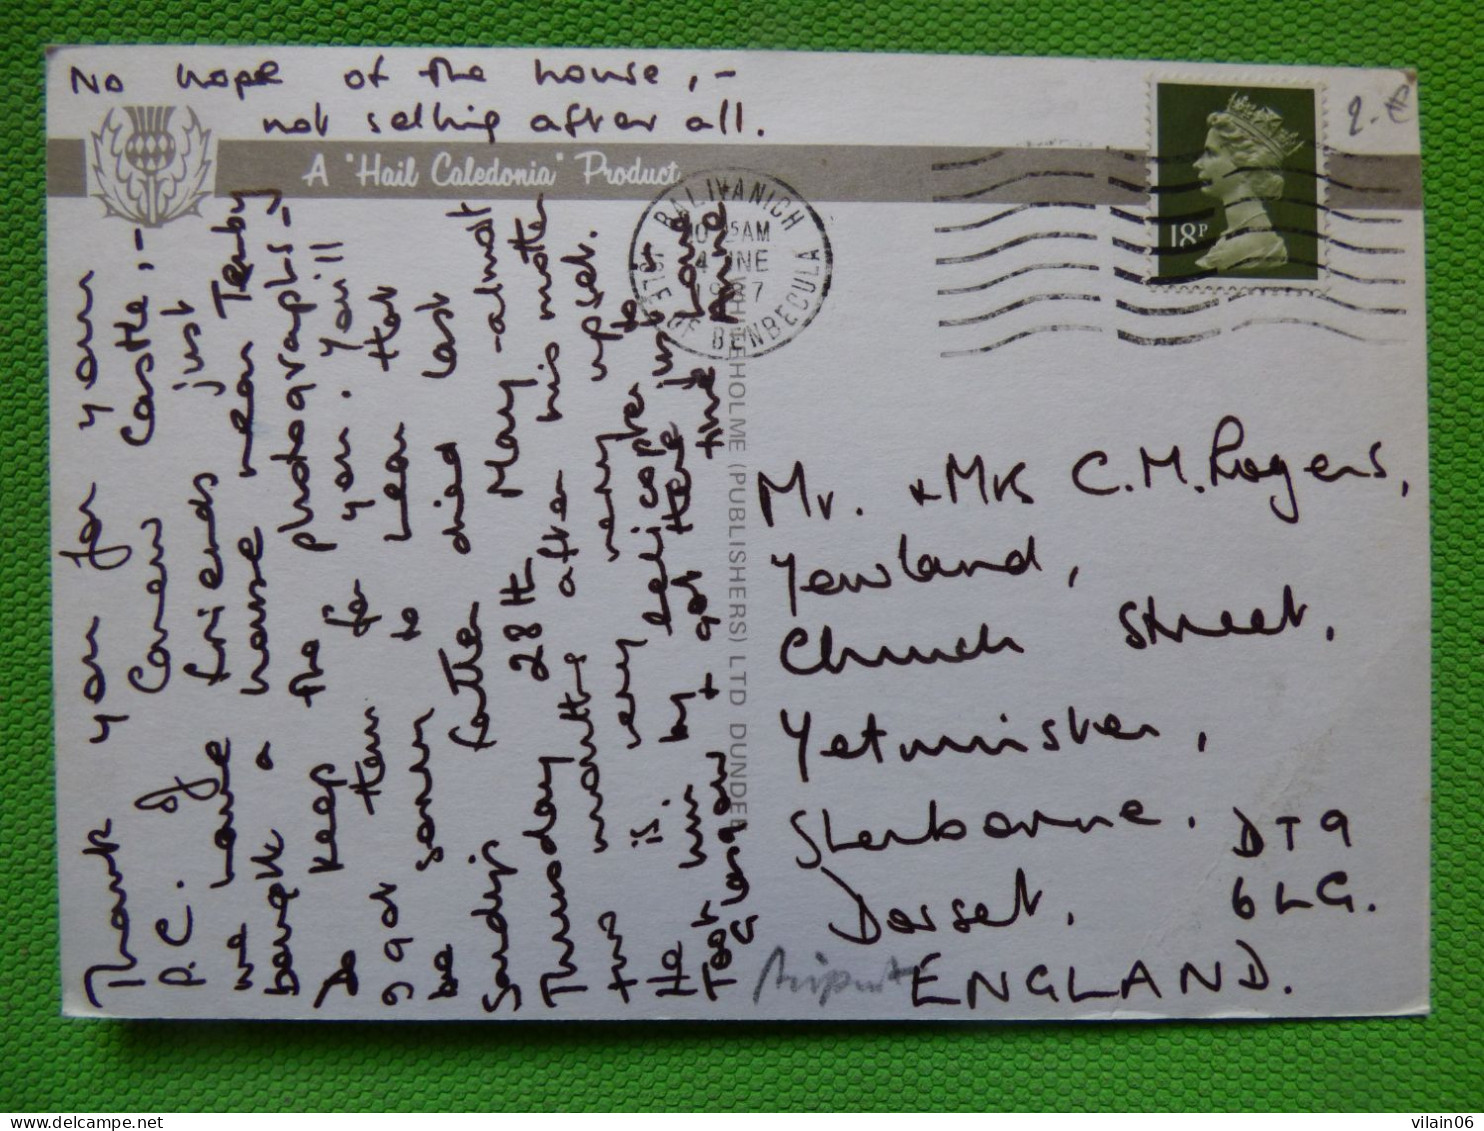 No hope of the house, -
not selling after all.
A "Hail Caledonia" Product
Thank you for your
P.C. of Carew Castle, -
we have friends just
bought a house near Tenby
Do keep the photographs -
got them for you. You'll
be sorry to hear that
Sandy's father died last
Thursday 28th May - almost
two months after his mother
He is very very upset.
Took him by helicopter to
Glasgow & got there in one
WHITEHOLME (PUBLISHERS) LTD DUNDEE
BALIVANICH
AM
4 JNE
1987
ISLE OF BENBECULA
18P
2.-
Mr. & Mrs C.M. Rogers,
Yewland,
Church Street,
Yetminster,
Sherborne.
Dorset. DT9
6LG.
ENGLAND.
Airport
vilain06